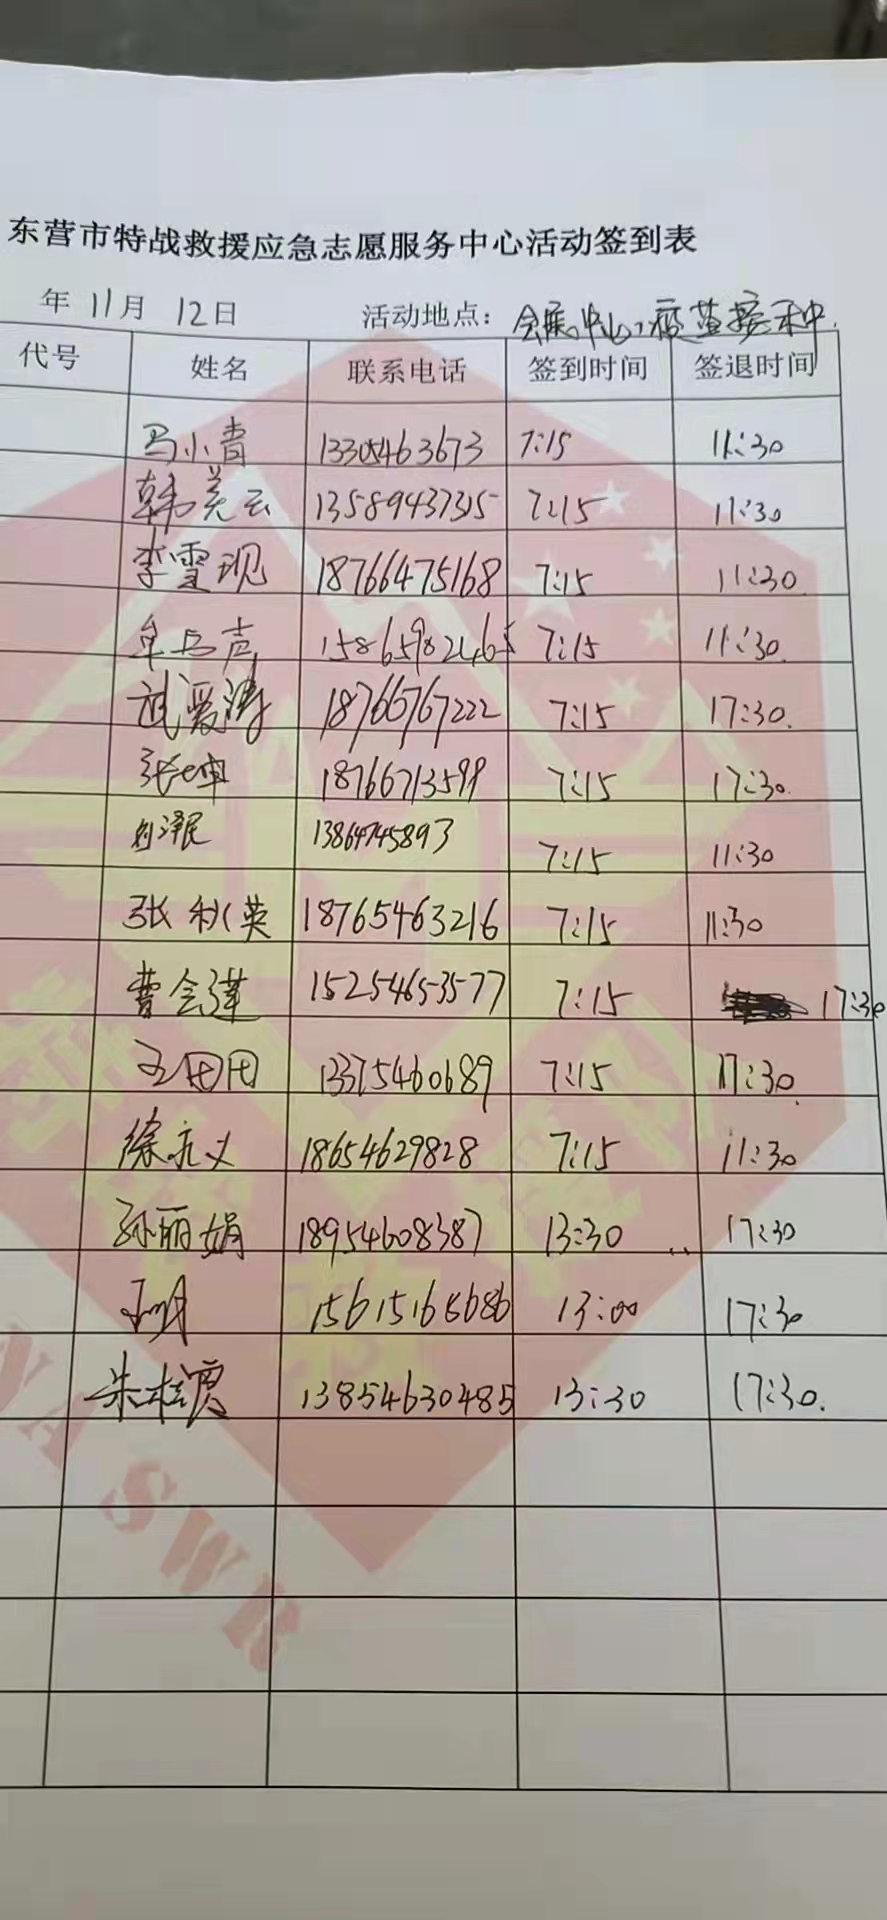 东营市特战救援应急志愿服务中心活动签到表
年 11月 12日 活动地点：会展中心，疫苗接种.
代号 姓名 联系电话 签到时间 签退时间
马小青 13305463673 7:15 11:30
韩美云 13589437315 7:15 11:30
李雪现 18766475168 7:15 11:30
15865982465 7:15 11:30
武爱涛 18766767222 7:15 17:30
张坤 18766713599 7:15 17:30
刘泽民 13864745893 7:15 11:30
张秋英 18765463216 7:15 11:30
曹会莲 15254653577 7:15 17:30
王田田 13375460689 7:15 17:30
徐永义 18654629828 7:15 11:30
孙丽娟 18954608387 13:30 17:30
王明 15615165686 13:00 17:30
朱桂 13854630485 13:30 17:30
SWB